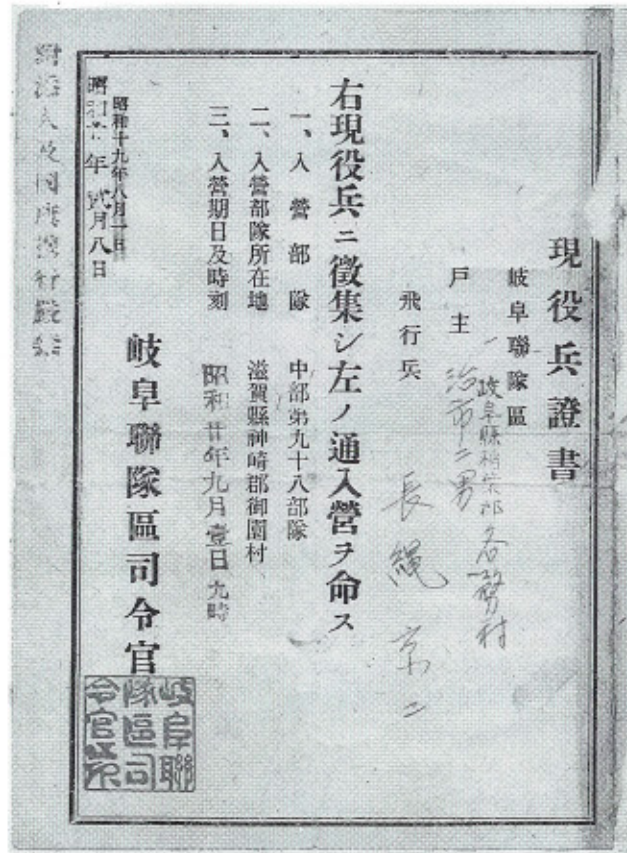 現役兵證書
岐阜聯隊區
岐阜縣稲葉郡各務村
戸主 治市二男
飛行兵 長縄京二
右現役兵ニ徴集シ左ノ通入營ヲ命ス
一、入營部隊 中部第九十八部隊
二、入營部隊所在地 滋賀縣神崎郡御園村
三、入營期日及時刻 昭和廿年九月壹日九時
昭和十九年八月一日
昭和廿年弐月八日
岐阜聯隊區司令官
岐阜聯
隊區司
令官印